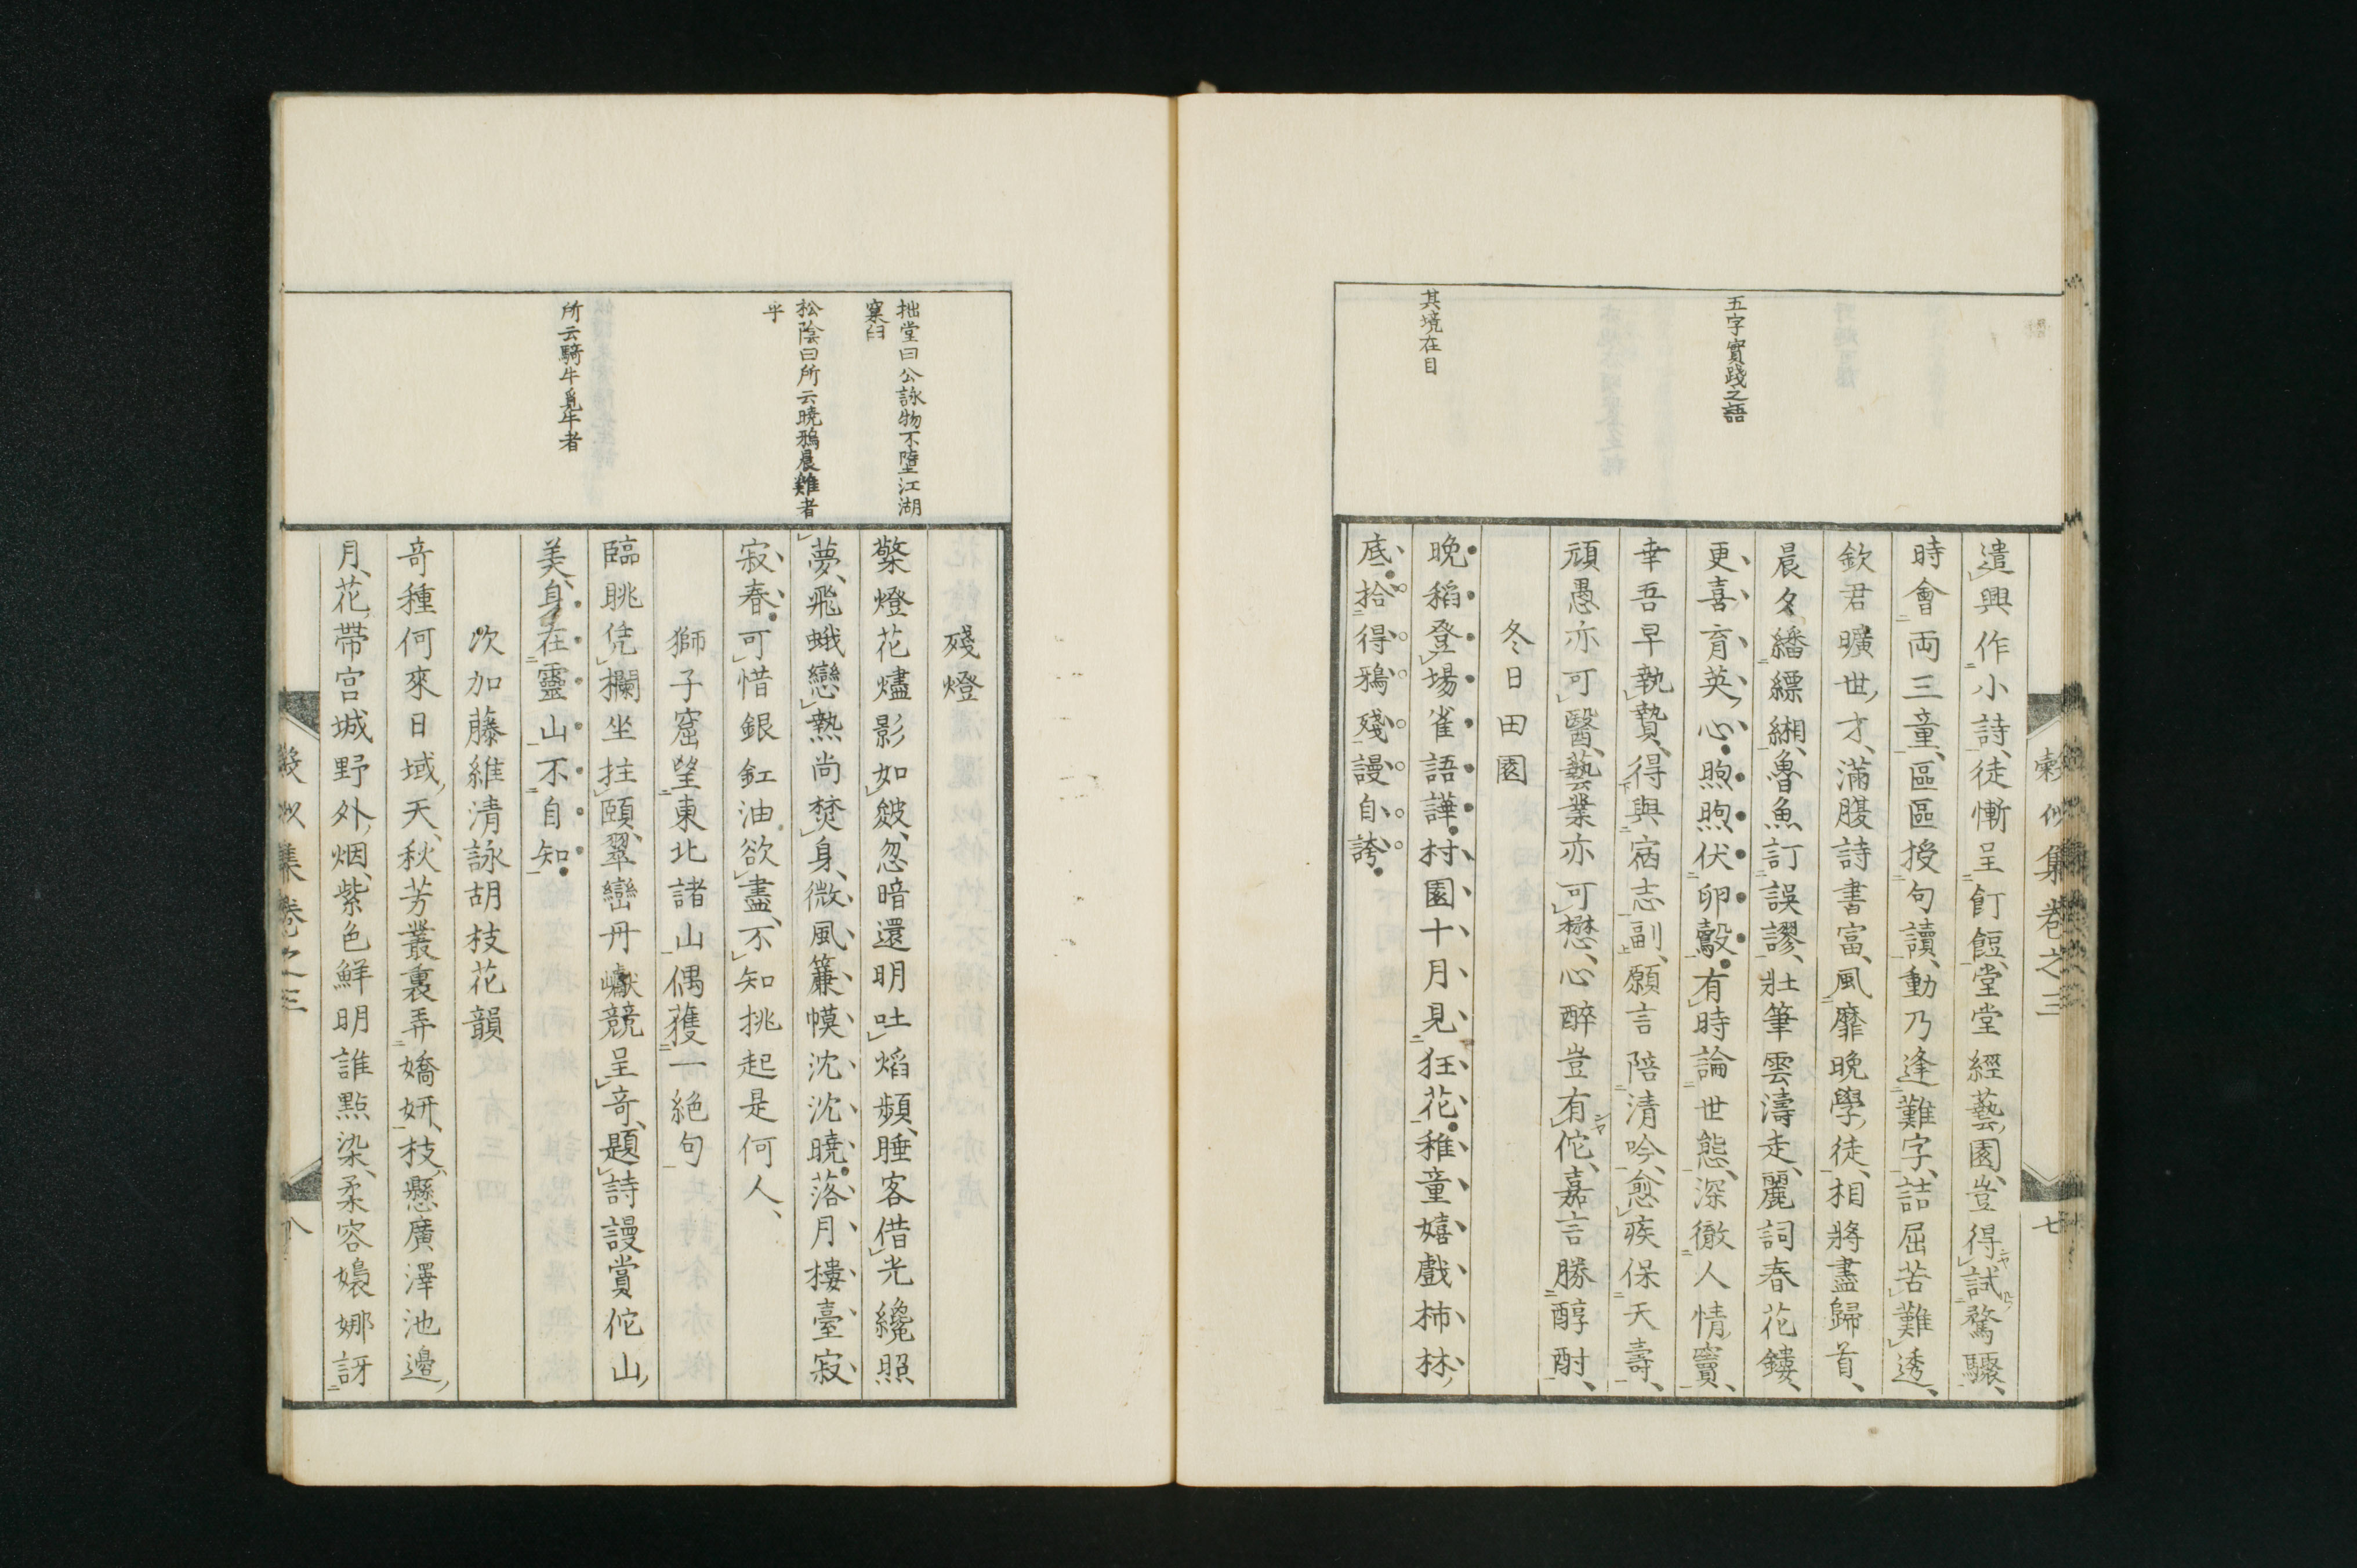 五字實踐之語
其境在目
遣興作小詩徒慚呈飣餖堂堂經藝園豈得試騖驟
時會両三童區區授句讀動乃逢難字詰屈苦難透
欽君曠世才滿腹詩書富風靡晩學徒相將盡歸首
晨夕繙縹緗魯魚訂誤謬壯筆雲濤走麗詞春花鏤
更喜育英心煦煦伏卵鷇有時論世態深徹人情竇
幸吾早執贄得與宿志副願言陪清吟愈疾保天壽
頑愚亦可醫藝業亦可懋心醉豈有佗嘉言勝醇酎
冬日田園
晩稻登場雀語譁村園十月見狂花稚童嬉戲柿林
底拾得鴉殘謾自誇
糓似集卷之三
七
拙堂曰公詠物不墮江湖
窠臼
松陰曰所云曉鴉晨雞者
乎
所云騎牛覓牛者
殘燈
檠燈花燼影如皴忽暗還明吐焰頻睡客借光纔照
夢飛蛾戀熱尚焚身微風簾幙沈沈曉落月樓臺寂
寂春可惜銀釭油欲盡不知挑起是何人
獅子窟望東北諸山偶獲一絶句
臨眺凭欄坐拄頤翠巒丹巘競呈奇題詩謾賞佗山
美身在靈山不自知
次加藤維清詠胡枝花韻
奇種何來日域天秋芳叢裏弄嬌妍枝懸廣澤池邊
月花帶宮城野外烟紫色鮮明誰點染柔容嬝娜訝
糓似集卷之三
八